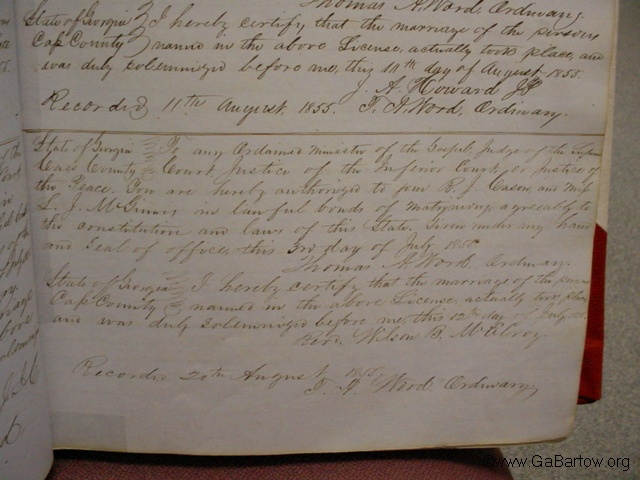 Thomas A. Word Ordinary.
State of Georgia } I hereby certify, that the marriage of the persons
Cass County } named in the above License, actually took place, and
was duly solemnized before me, this 10th day of August 1855.
J. A. Howard JP
Recorded 11th August, 1855. T. A. Word, Ordinary.
State of Georgia } To any Ordained Minister of the Gospel, Judge of the
Cass County } Court, Justice of the Inferior Court, or Justice of
the Peace. You are hereby authorized to join R. J. Cason, and Miss
L. J. McGinnis in lawful bonds of matrimony, agreeably to
the constitution and laws of this State. Given under my hand
and Seal of office, this 3rd day of July 1855
Thomas A. Word, Ordinary
State of Georgia } I hereby certify that the marriage of the persons
Cass County } named in the above License, actually took place,
and was duly solemnized before me, this 12th day of July
Revd. Wilson B. McElroy
Recorded 20th August 1855.
T. A. Word Ordinary
©www.GaBartow.org